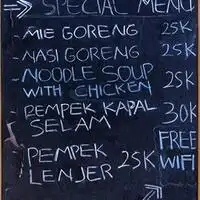 → SPECIAL MENU
- MIE GORENG 25K
- NASI GORENG 25K
- NOODLE SOUP
WITH CHICKEN 25K
- PEMPEK KAPAL
SELAM 30K
FREE
WIFI
- PEMPEK
LENJER 25K